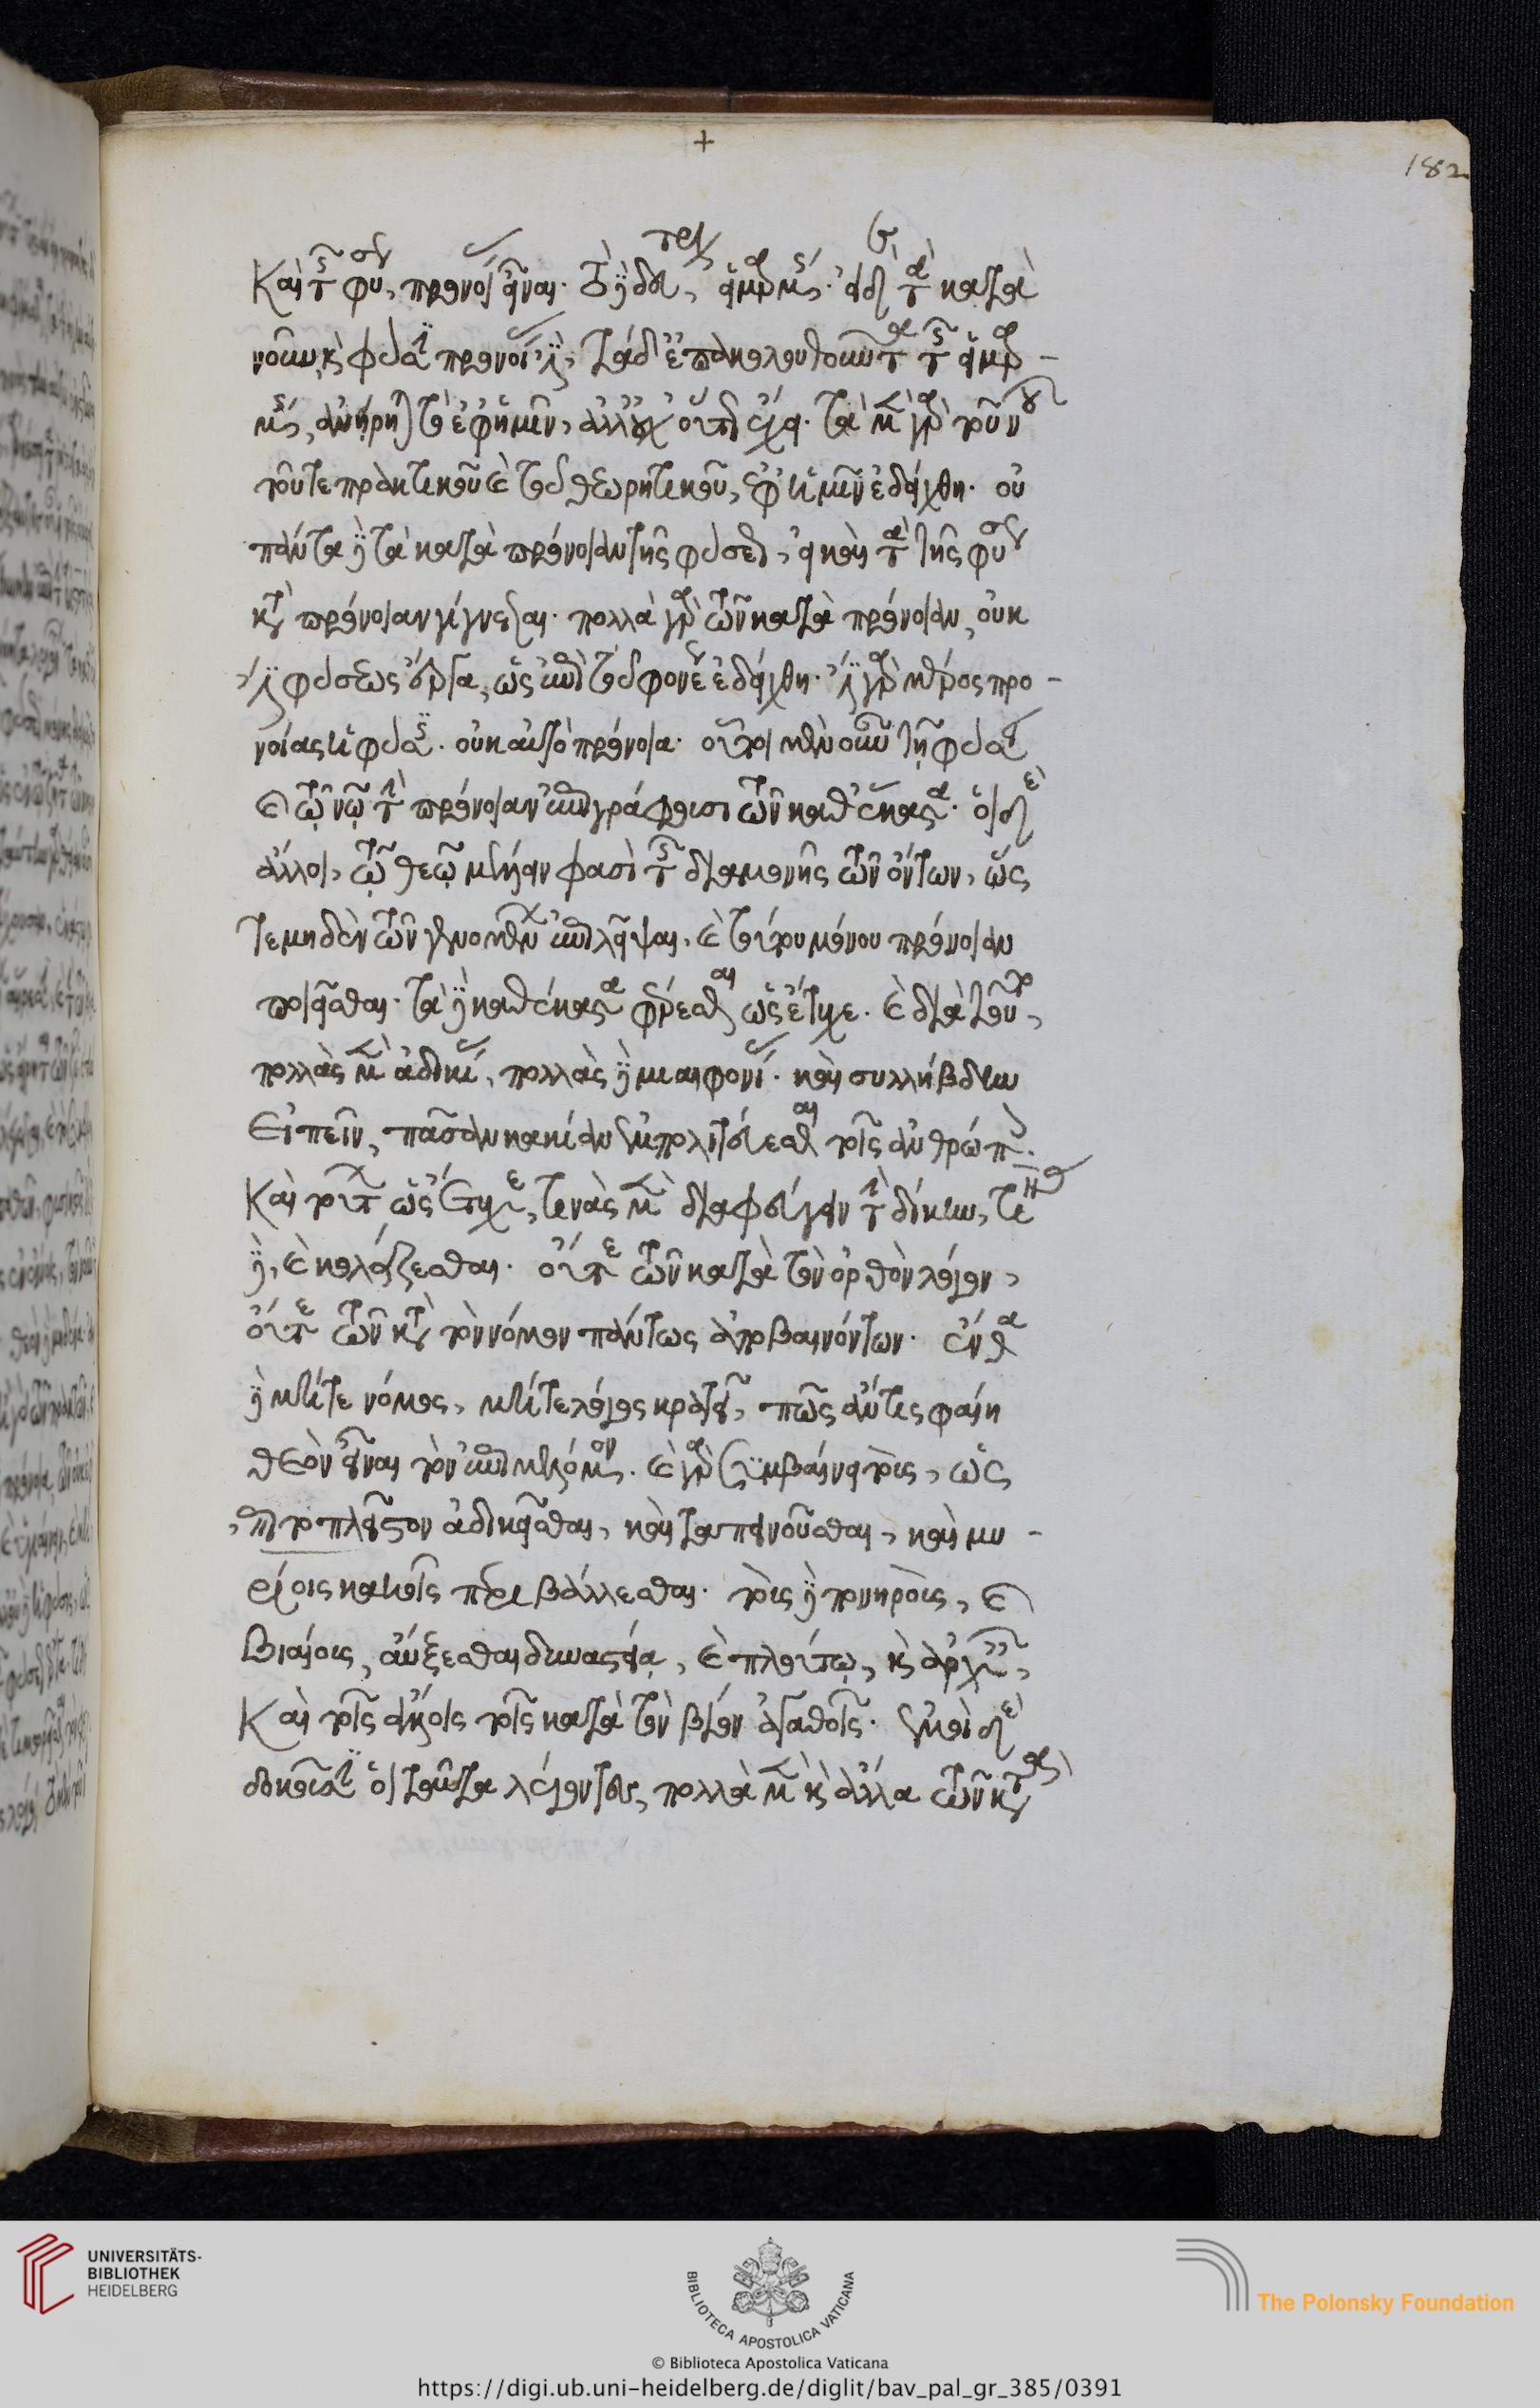 Καὶ τῆς φύσεως, προνοίας εἶναι. τὸ δὲ τρίτον, εἱμαρμένης. εἰ δὲ τὰ κατὰ
νοῦν καὶ φύσιν προνοίας ἐστί, τὰ δ' ἐπακολουθοῦντα τῆς εἱμαρ-
μένης, ἀνῄρηται τὸ ἐφ' ἡμῖν, ἀλλ' οὐχ οὕτως ἔχει. τὰ μὲν γὰρ τοῦ νοῦ
τοῦ τε πρακτικοῦ καὶ τοῦ θεωρητικοῦ, ἐφ' ἡμῖν ἐδείχθη. οὐ
πάντα δὲ τὰ κατὰ πρόνοιαν τῆς φύσεως, εἰ καὶ τὰ τῆς φύσεως
κατὰ πρόνοιαν γίγνεται. πολλὰ γὰρ τῶν κατὰ πρόνοιαν, οὐκ
ἔστι φύσεως ἔργα, ὡς ἐπὶ τοῦ φόνου ἐδείχθη. ἔστι γὰρ μέρος προ-
νοίας ἡ φύσις. οὐκ αὐτὸ πρόνοια. οὗτοι μὲν οὖν τῇ φύσει
καὶ τῷ νῷ τὴν πρόνοιαν ἐπιγράφουσι τῶν καθ' ἕκαστα. οἱ δὲ
ἄλλοι, τῷ θεῷ μέλειν φασὶ τῆς διαμονῆς τῶν ὄντων, ὥς
τε μηδὲν τῶν γενομένων ἐπιλεῖψαι, καὶ τούτου μόνου πρόνοιαν
ποιεῖσθαι. τὰ δὲ καθ' ἕκαστα φέρεσθαι ὡς ἔτυχε. καὶ διὰ τοῦτο,
πολλὰς μὲν ἀδικίας, πολλὰς δὲ μιαιφονίας. καὶ συλλήβδην
εἰπεῖν, πᾶσαν κακίαν ἐμπολιτεύεσθαι τοῖς ἀνθρώποις.
Καὶ τούτων ὡς ἔτυχε, τινὰς μὲν διαφεύγειν τὴν δίκην, τινὰς
δὲ, καὶ κολάζεσθαι. οὔτε τῶν κατὰ τὸν ὀρθὸν λόγον,
οὔτε τῶν κατὰ τὸν νόμον πάντως ἀποβαινόντων. ἔνθα
δὲ μήτε νόμος, μήτε λόγος κρατεῖ, πῶς ἄν τις φαίη
θεὸν εἶναι τὸν ἐπιμελόμενον. καὶ γὰρ συμβαίνει τοῖς ἀγαθοῖς, ὡς
ἐπὶ τὸ πλεῖστον ἀδικεῖσθαι, καὶ ταπεινοῦσθαι, καὶ μυ-
ρίοις κακοῖς περιβάλλεσθαι. τοῖς δὲ πονηροῖς, καὶ
βιαίοις, αὔξεσθαι δυναστείᾳ, καὶ πλούτῳ, καὶ ἀρχαῖς,
Καὶ τοῖς ἄλλοις τοῖς κατὰ τὸν βίον ἀγαθοῖς. ἐμοὶ δὲ
δοκοῦσιν οἱ ταῦτα λέγοντες, πολλὰ μὲν καὶ ἄλλα τῶν κατὰ
182
UNIVERSITÄTS-
BIBLIOTHEK
HEIDELBERG
BIBLIOTECA APOSTOLICA VATICANA
The Polonsky Foundation
© Biblioteca Apostolica Vaticana
https://digi.ub.uni-heidelberg.de/diglit/bav_pal_gr_385/0391